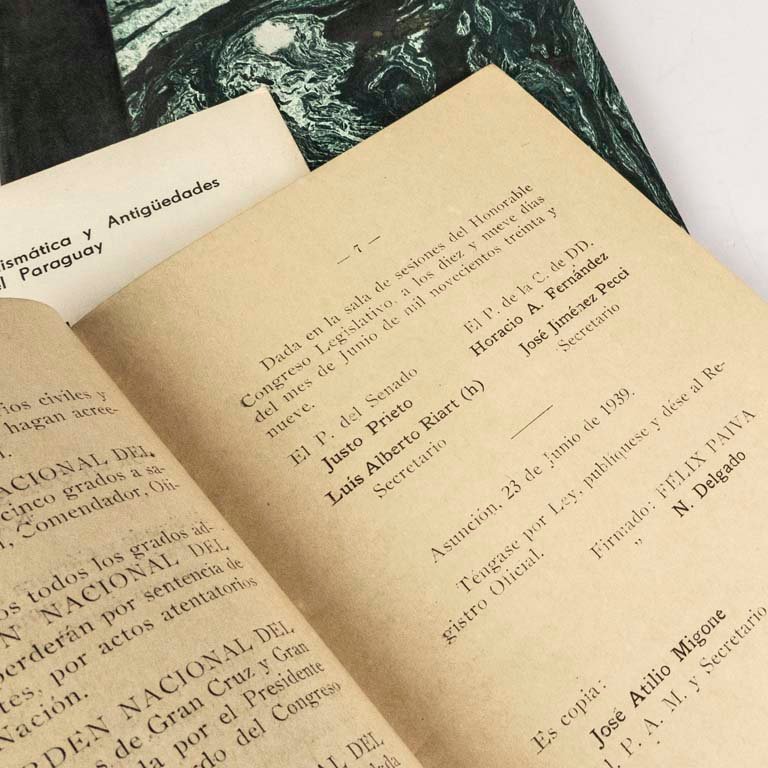 ismática y Antigüedades
el Paraguay
rios civiles y
hagan acree-
ACIONAL DEL
cinco grados a sa-
Comendador, Ofi-
os todos los grados ad-
N NACIONAL DEL
perderán por sentencia de
tes, por actos atentatorios
Nación.
RDEN NACIONAL DEL
s de Gran Cruz y Gran
da por el Presidente
do del Congreso
DEL
— 7 —
Dada en la sala de sesiones del Honorable
Congreso Legislativo, a los diez y nueve días
del mes de Junio de mil novecientos treinta y
nueve.
El P. del Senado
Justo Prieto
Luis Alberto Riart (h)
Secretario
El P. de la C. de DD.
Horacio A. Fernández
José Jiménez Pecci
Secretario
Asunción, 23 de Junio de 1939.
Téngase por Ley, publíquese y dése al Re-
gistro Oficial.
Firmado: FELIX PAIVA
„ N. Delgado
Es copia:
José Atilio Migone
l. P. A. M. y Secretario